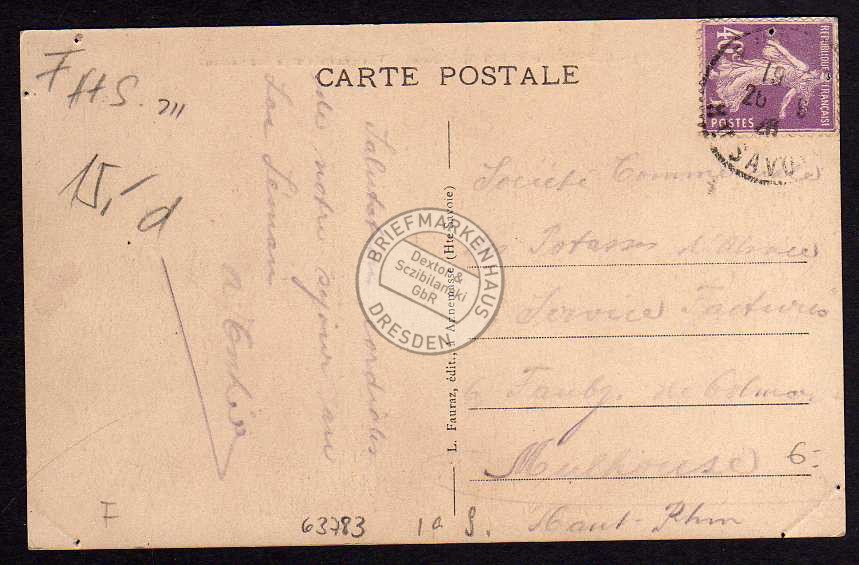 CARTE POSTALE
RÉPUBLIQUE FRANÇAISE
POSTES
19
26 6
26
SAVOIE
F
HS.
15,- d
Salutations cordiales
de notre séjour au
Lac Léman
Société Commerciale
Potasses d'Alsace
Service Factures
Faubg. de Colmar
Mulhouse
Haut-Rhin
6.-
L. Fauraz, édit., à Annemasse (Hte-Savoie)
BRIEFMARKENHAUS
Dextor &
Sczibilanski
GbR
DRESDEN
F
63783
1a